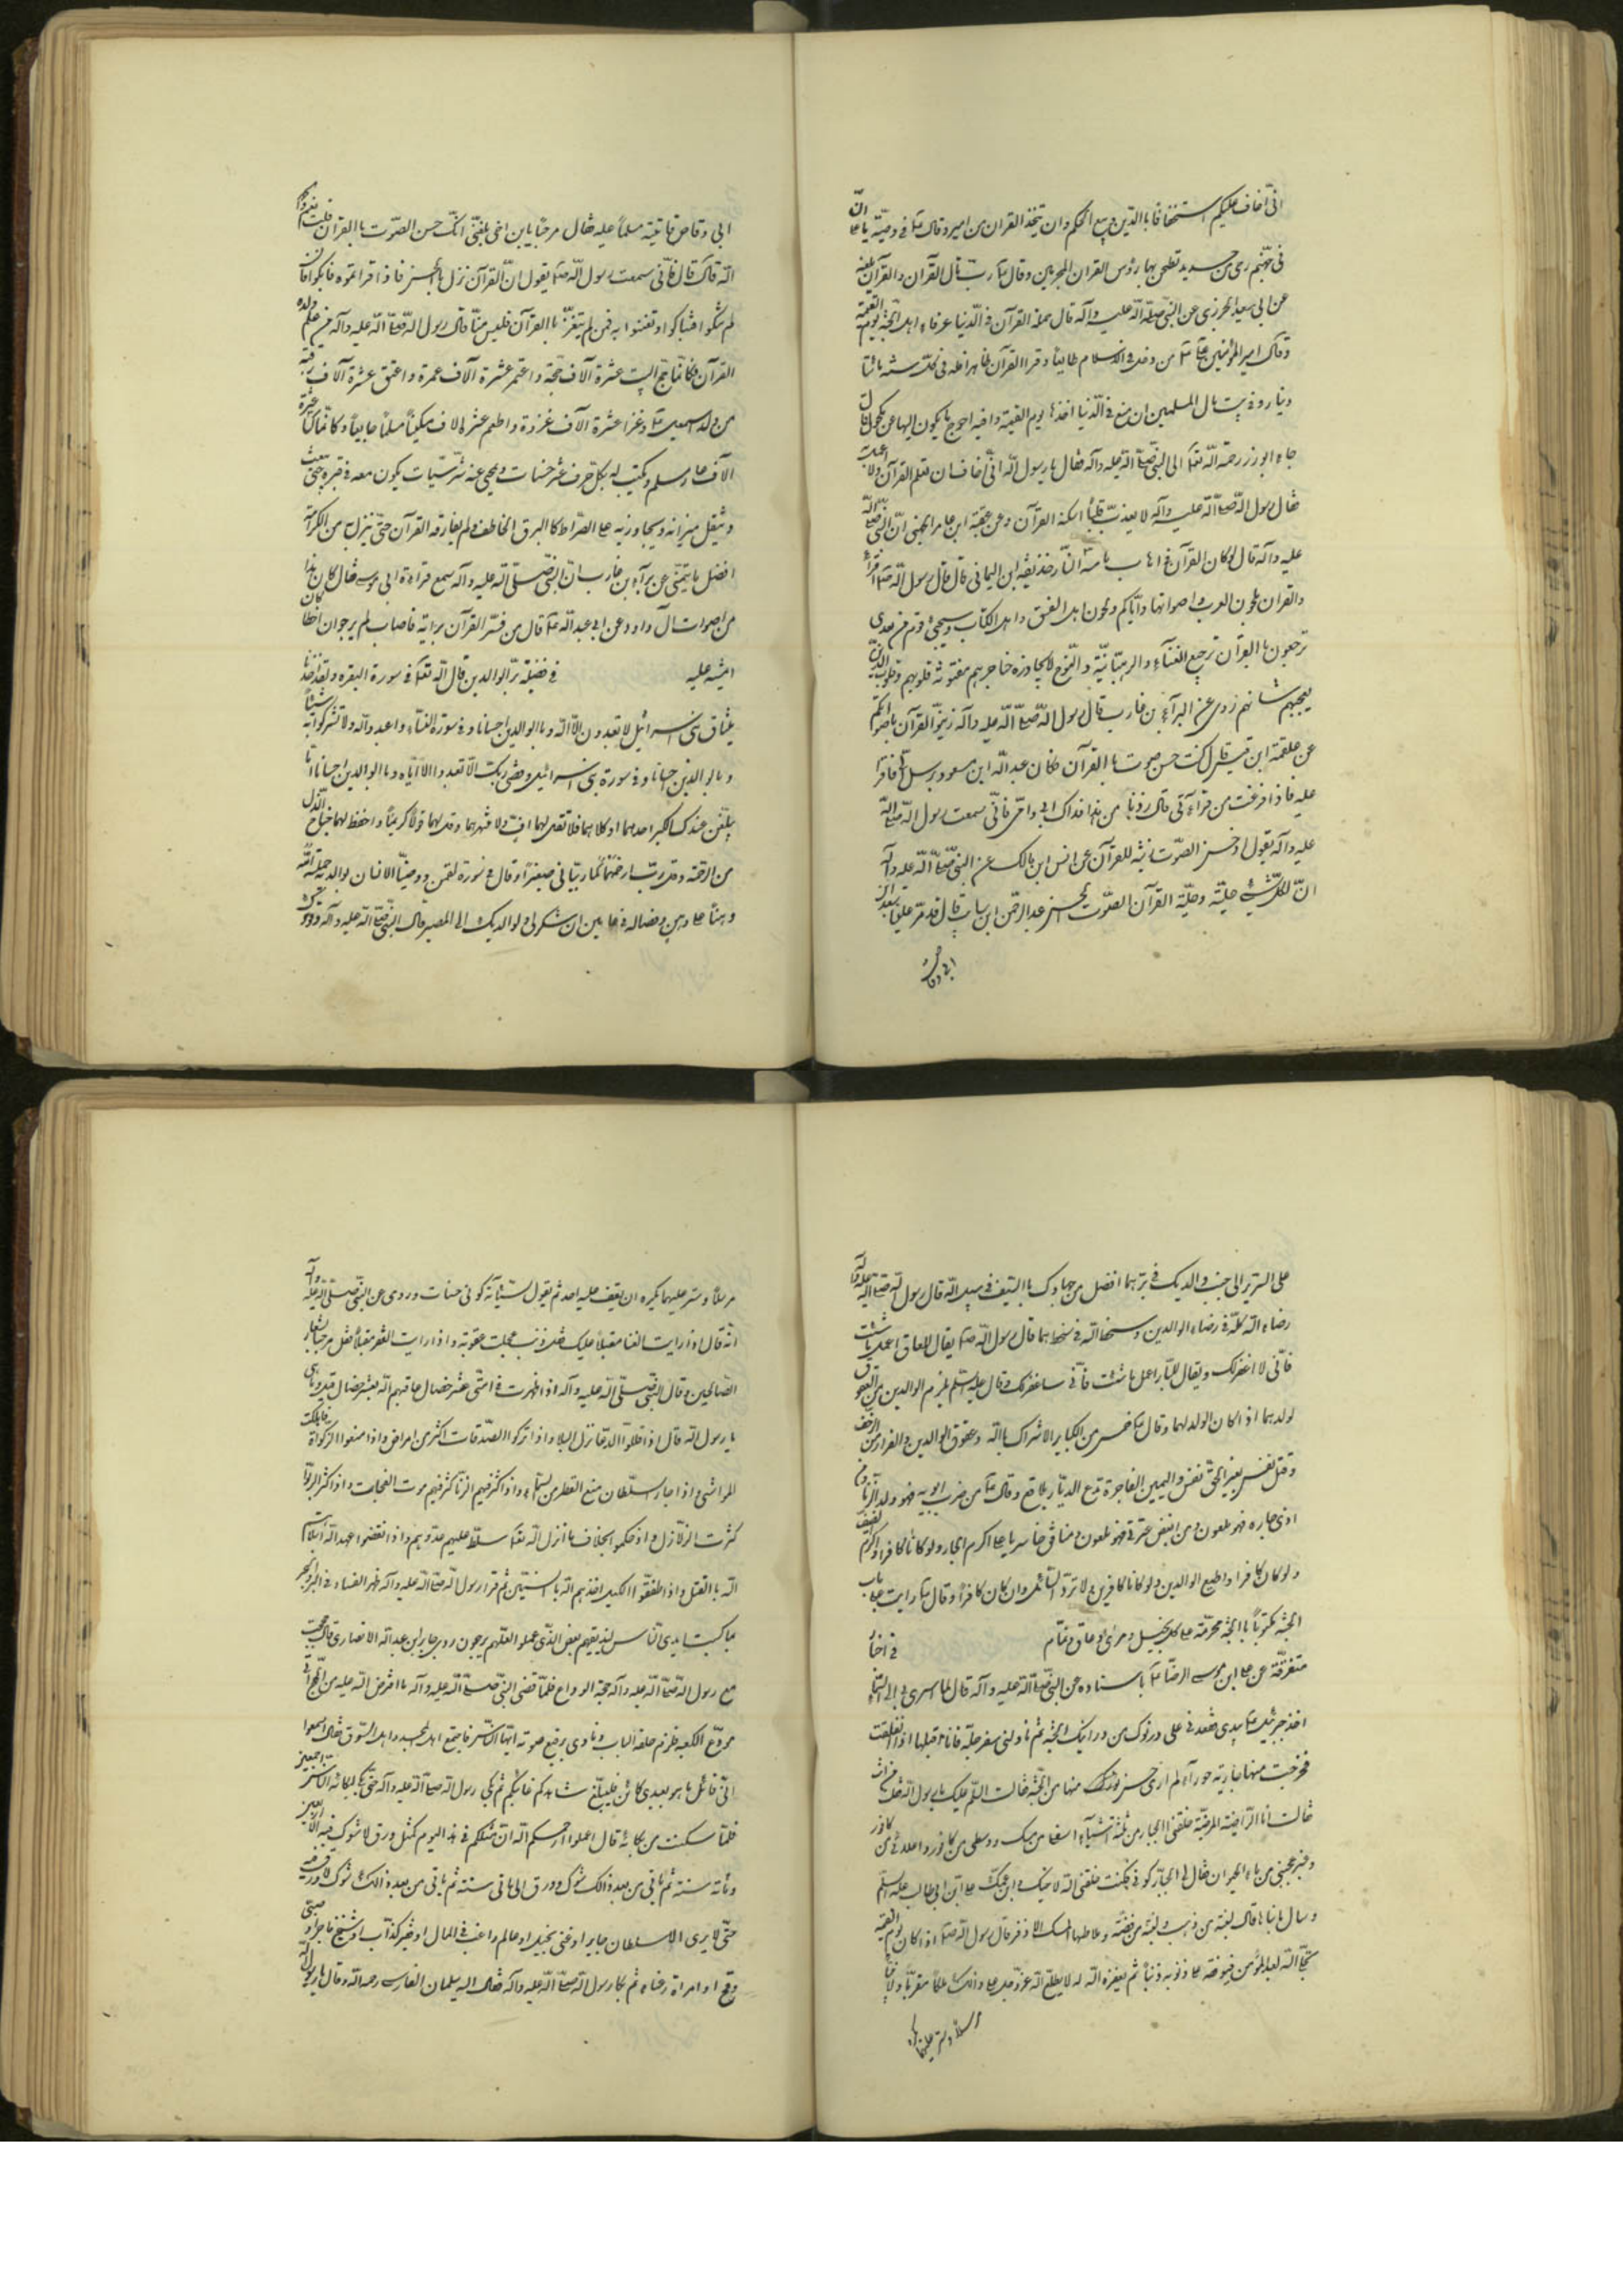 انّى اخاف عليكم استخفافا بالدّين وبيع الحكم وان تتخذ القران مزامير وقال ع فى وصيّته يا على انّ
فى جهنّم رحى من حديد تطحن بها رؤس القران المجرمين وقال ع ربّ تال القرآن والقرآن يلعنه
عن ابى سعيد الخدرى عن النبى صلّى الله عليه وآله قال حملة القرآن فى الدّنيا عرفاء اهل الجنّة يوم القيمة
وقال امير المؤمنين ع من دخل فى الاسلام طائعا وقرا القرآن ظاهرا فله فى كلّ سنة مائتا
دينار فى بيت مال المسلمين ان منع فى الدّنيا اخذها يوم القيمة وافية احوج ما يكون اليها عن مكحول قال
جاء ابوذر رحمة الله تعا الى النبى صلّى الله عليه وآله فقال يا رسول الله انّى اخاف ان تعلم القرآن ولا اعمل به
فقال رسول الله صلّى الله عليه وآله لا يعذب الله قلبا اسكنه القرآن وعن عقبة ابن عامر الجهنى انّ النبى صلّى الله
عليه وآله قال لو كان القرآن فى اهاب ما مسّه النّار حذيفة ابن اليمانى قال قال رسول الله ص اقرؤا
والقران بلحون العرب واصواتها وايّاكم ولحون اهل الفسق واهل الكتاب وسيجئ قوم من بعدى
ترجعون بالقرآن ترجيع الغناء والرهبانيّة والنّوح لا يجاوزه حناجرهم مفتونة قلوبهم وقلوب الذين
يعجبهم شانهم روى عن البرآء بن عازب قال رسول الله صلّى الله عليه وآله زيّنوا القرآن باصواتكم
عن علقمة ابن قيس قال كنت حسن صوت بالقرآن فكان عبد الله ابن مسعود يرسل الىّ فاقرا
عليه فاذا فرغت من قراءتى قال زدنا من هذا فداك ابى وامّى فانّى سمعت رسول الله صلّى الله
عليه وآله يقول حسن الصّوت زينة للقرآن عن انس ابن مالك عن النبى صلّى الله عليه وآله
انّ لكلّ شئ حلية وحلية القرآن الصّوت الحسن عبد الرحمن ابن سائب قال قدم علينا سعد ابن
ابى وقاص
ابى وقاص فاتيته مسلّما عليه فقال مرحبا يا بن اخى بلغنى انّك حسن الصّوت بالقرآن قلت نعم والحمد
لله قال فانّى سمعت رسول الله ص يقول انّ القرآن نزل بالحزن فاذا قراتموه فابكوا فان
لم تبكوا فتباكوا وتغنوا به فمن لم يتغنّ بالقرآن فليس منّا قال رسول الله صلّى الله عليه وآله من علّم ولده
القرآن فكانّما حجّ البيت عشرة آلاف حجّة واعتمر عشرة آلاف عمرة واعتق عشرة آلاف رقبة
من ولد اسمعيل ع وغزا عشرة آلاف غزوة واطعم عشر آلاف مسكينا مسلما جايعا وكانّما كسا عشرة
آلاف عار مسلم ويكتب له بكلّ حرف عشر حسنات ويمحى عنه عشر سيّئات يكون معه فى قبره حتّى يبعث
ويثقل ميزانه ويجاوز به على الصّراط كالبرق الخاطف ولم يفارقه القرآن حتّى ينزل به من الكرامة
افضل ما يتمنّى عن براء بن عازب انّ النبى صلّى الله عليه وآله سمع قراءة ابى موسى فقال كان هذا
من اصوات آل داود وعن ابى عبد الله ع قال من فسّر القرآن برايه فاصاب لم يوجر وان اخطا كان
اثمه عليه فى فضيلة برّ الوالدين قال الله تعا فى سورة البقره ولقد اخذنا
ميثاق بنى اسرائيل لا تعبدون الّا الله وبالوالدين احسانا وفى سورة النساء واعبدوا الله ولا تشركوا به شيئا
وبالوالدين احسانا وفى سورة بنى اسرائيل وقضى ربّك الّا تعبدوا الّا ايّاه وبالوالدين احسانا امّا
يبلغنّ عندك الكبر احدهما او كلاهما فلا تقل لهما افّ ولا تنهرهما وقل لهما قولا كريما واخفض لهما جناح الذلّ
من الرحمة وقل ربّ ارحمهما كما ربّيانى صغيرا وقال فى سورة لقمن ووصّينا الانسان بوالديه حملته امّه
وهنا على وهن وفصاله فى عامين ان اشكر لى ولوالديك الىّ المصير قال النبى صلّى الله عليه وآله
على السّرير الى جنب والديك فى برّهما افضل من جهادك بالسّيف فى سبيل الله قال رسول الله صلّى الله عليه وآله
رضاء الله كلّه فى رضاء الوالدين وسخط الله فى سخطهما قال رسول الله ص يقال للعاق اعمل ما شئت
فانّى لا اغفرلك ويقال للبارّ اعمل ما شئت فانّى ساغفرلك وقال عليه السّلم يلزم الوالدين من العقوق
لولدهما اذا كان الولد لهما وقال ع خمس من الكباير الاشراك بالله وعقوق الوالدين والفرار من الزحف
وقتل نفس بغير الحقّ نفس واليمين الفاجرة تدع الديار بلاقع وقال ع من ضرب ابويه فهو ولد الزنا ومن
اذى جاره فهو ملعون ومن ابغض عترتى فهو ملعون ومنافق خاسر يا على اكرم الجار ولو كان كافرا واكرم الضيف
ولو كان كافرا واطع الوالدين ولو كانا كافرين ولا تردّ السّائل وان كان كافرا وقال ع رايت على باب
الجنّة مكتوبا بالجنّة محرّمة على كلّ بخيل ومرائى وعاق ونمّام فى اخبار
متفرّقة عن على ابن موسى الرضا ع باسناده عن النبى صلّى الله عليه وآله قال لمّا اسرى بى الى السّماء
اخذ جبرئيل ع بيدى فقعدنى على درنوك من درانيك الجنّة ثم ناولنى سفرجلة فانا اقلبها اذا انفلقت
فخرجت منها جارية حوراء لم ار احسن منها فى الجنّة فقالت السّلام عليك يا رسول الله فقلت من انت
فقالت انا الراضية المرضيّة خلقنى الجبار من ثلثة اشياء اسفلى من مسك ووسطى من كافور واعلائى من
عنبر عجننى من ماء الحيوان فقال لى الجبّار كونى فكنت خلقنى الله لاخيك وابن عمّك على ابن ابيطالب عليه السّلم
وسال بناها قال لبنة من ذهب ولبنة من فضّة وملاطها المسك الاذفر قال رسول الله ص اذا كان يوم القيمة
تجلّى الله لعبده المؤمن فيوقفه على ذنوبه ذنبا ذنبا ثم يغفره الله له لا يطلع الله عزّ وجلّ على ذلك ملكا مقرّبا ولا نبيّا
مرسلا وستر عليهما يكره
مرسلا وستر عليهما يكره ان يقف عليه احد ثم يقول لسيّئاته كونى حسنات وروى عن النبى صلّى الله عليه وآله
انّه قال اذا رايت الغنا مقبلا عليك فقل ذنب عجلت عقوبته واذا رايت الفقر مقبلا فقل مرحبا بشعار
الصّالحين وقال النبى صلّى الله عليه وآله اذا ظهرت فى امّتى عشر خصال عاقبهم الله بعشر خصال قيل وما هى
يا رسول الله قال اذا قللوا الدعا نزل البلاء واذا تركوا الصّدقات اكثر من امراض واذا منعوا الزكواة هلكت
المواشى واذا جار السلطان منع القطر من السّماء واذا كثر فيهم الزنا كثر فيهم موت الفجات واذا كثر الربوا
كثرت الزلازل واذا حكموا بخلاف ما انزل الله تعا سلّط عليهم عدوّهم واذا نقضوا عهد الله ابتلاهم
الله بالقتل واذا طففوا الكيل اخذهم الله بالسنين ثم قرا رسول الله صلّى الله عليه وآله ظهر الفساد فى البر والبحر
بما كسبت ايدى النّاس ليذيقهم بعض الّذى عملوا لعلّهم يرجعون روى جابر ابن عبد الله الانصارى قال حججت
مع رسول الله صلّى الله عليه وآله حجّة الوداع فلمّا قضى النبى صلّى الله عليه وآله ما افترض الله عليه من الحجّ اتى
مودّع الكعبة فلزم حلقة الباب ونادى برفيع صوته ايّها النّاس فاجتمع اهل المسجد واهل السّوق فقال اسمعوا
انّى قائل ما هو بعدى كائن فليبلّغ شاهدكم غائبكم ثم بكى رسول الله صلّى الله عليه وآله حتّى بكى لبكائه النّاس اجمعين
فلمّا سكت من بكائه قال اعلموا رحمكم الله انّ مثلكم فى هذا اليوم كمثل ورق لا شوك فيه الى اربعين
ومائة سنة ثم ياتى من بعد ذلك شوك وورق الى ماتى سنة ثم ياتى من بعد ذلك شوك لا ورق فيه
حتّى لا يرى الا سلطان جابر او غنى بخيل او عالم راغب فى المال او فقير كذّاب او شيخ فاجر او صبى
وقح او امراة رعناء ثم بكا رسول الله صلّى الله عليه وآله فقام اليه سلمان الفارسى رحمه الله وقال يا رسول الله